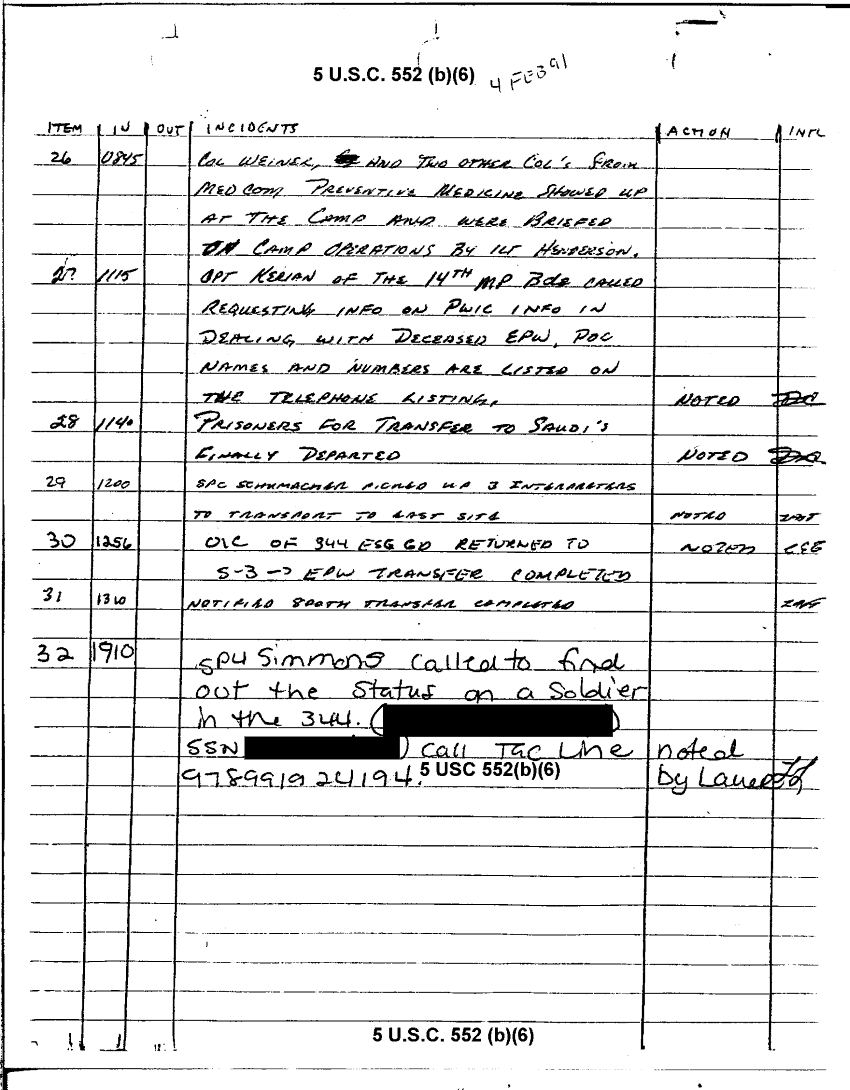 5 U.S.C. 552 (b)(6) 4 FEB 91
ITEM IN OUT INCIDENTS ACTION INTL
26 0845 COL WEINER, AND TWO OTHER COL'S FROM
MEDCOM PREVENTIVE MEDICINE SHOWED UP
AT THE CAMP AND WERE BRIEFED
ON CAMP OPERATIONS BY 1LT HENDERSON.
27 1115 CPT KERIAN OF THE 14TH MP Bde CALLED
REQUESTING INFO ON PWIC INFO IN
DEALING WITH DECEASED EPW, POC
NAMES AND NUMBERS ARE LISTED ON
THE TELEPHONE LISTING, NOTED
28 1140 PRISONERS FOR TRANSFER TO SAUDI'S
FINALLY DEPARTED NOTED
29 1200 SPC SCHUMACHER PICKED UP 3 INTERPRETERS
TO TRANSPORT TO LAST SITE NOTED
30 1256 OIC OF 344 ESG GD RETURNED TO NOTED
S-3 -> EPW TRANSFER COMPLETED
31 1310 NOTIFIED 800TH TRANSFER COMPLETED
32 1910 Simmons called to find
out the Status on a Soldier
in the 344. (
SSN ) Call Tac Line noted
9789919 24194. 5 USC 552(b)(6) by
5 U.S.C. 552 (b)(6)